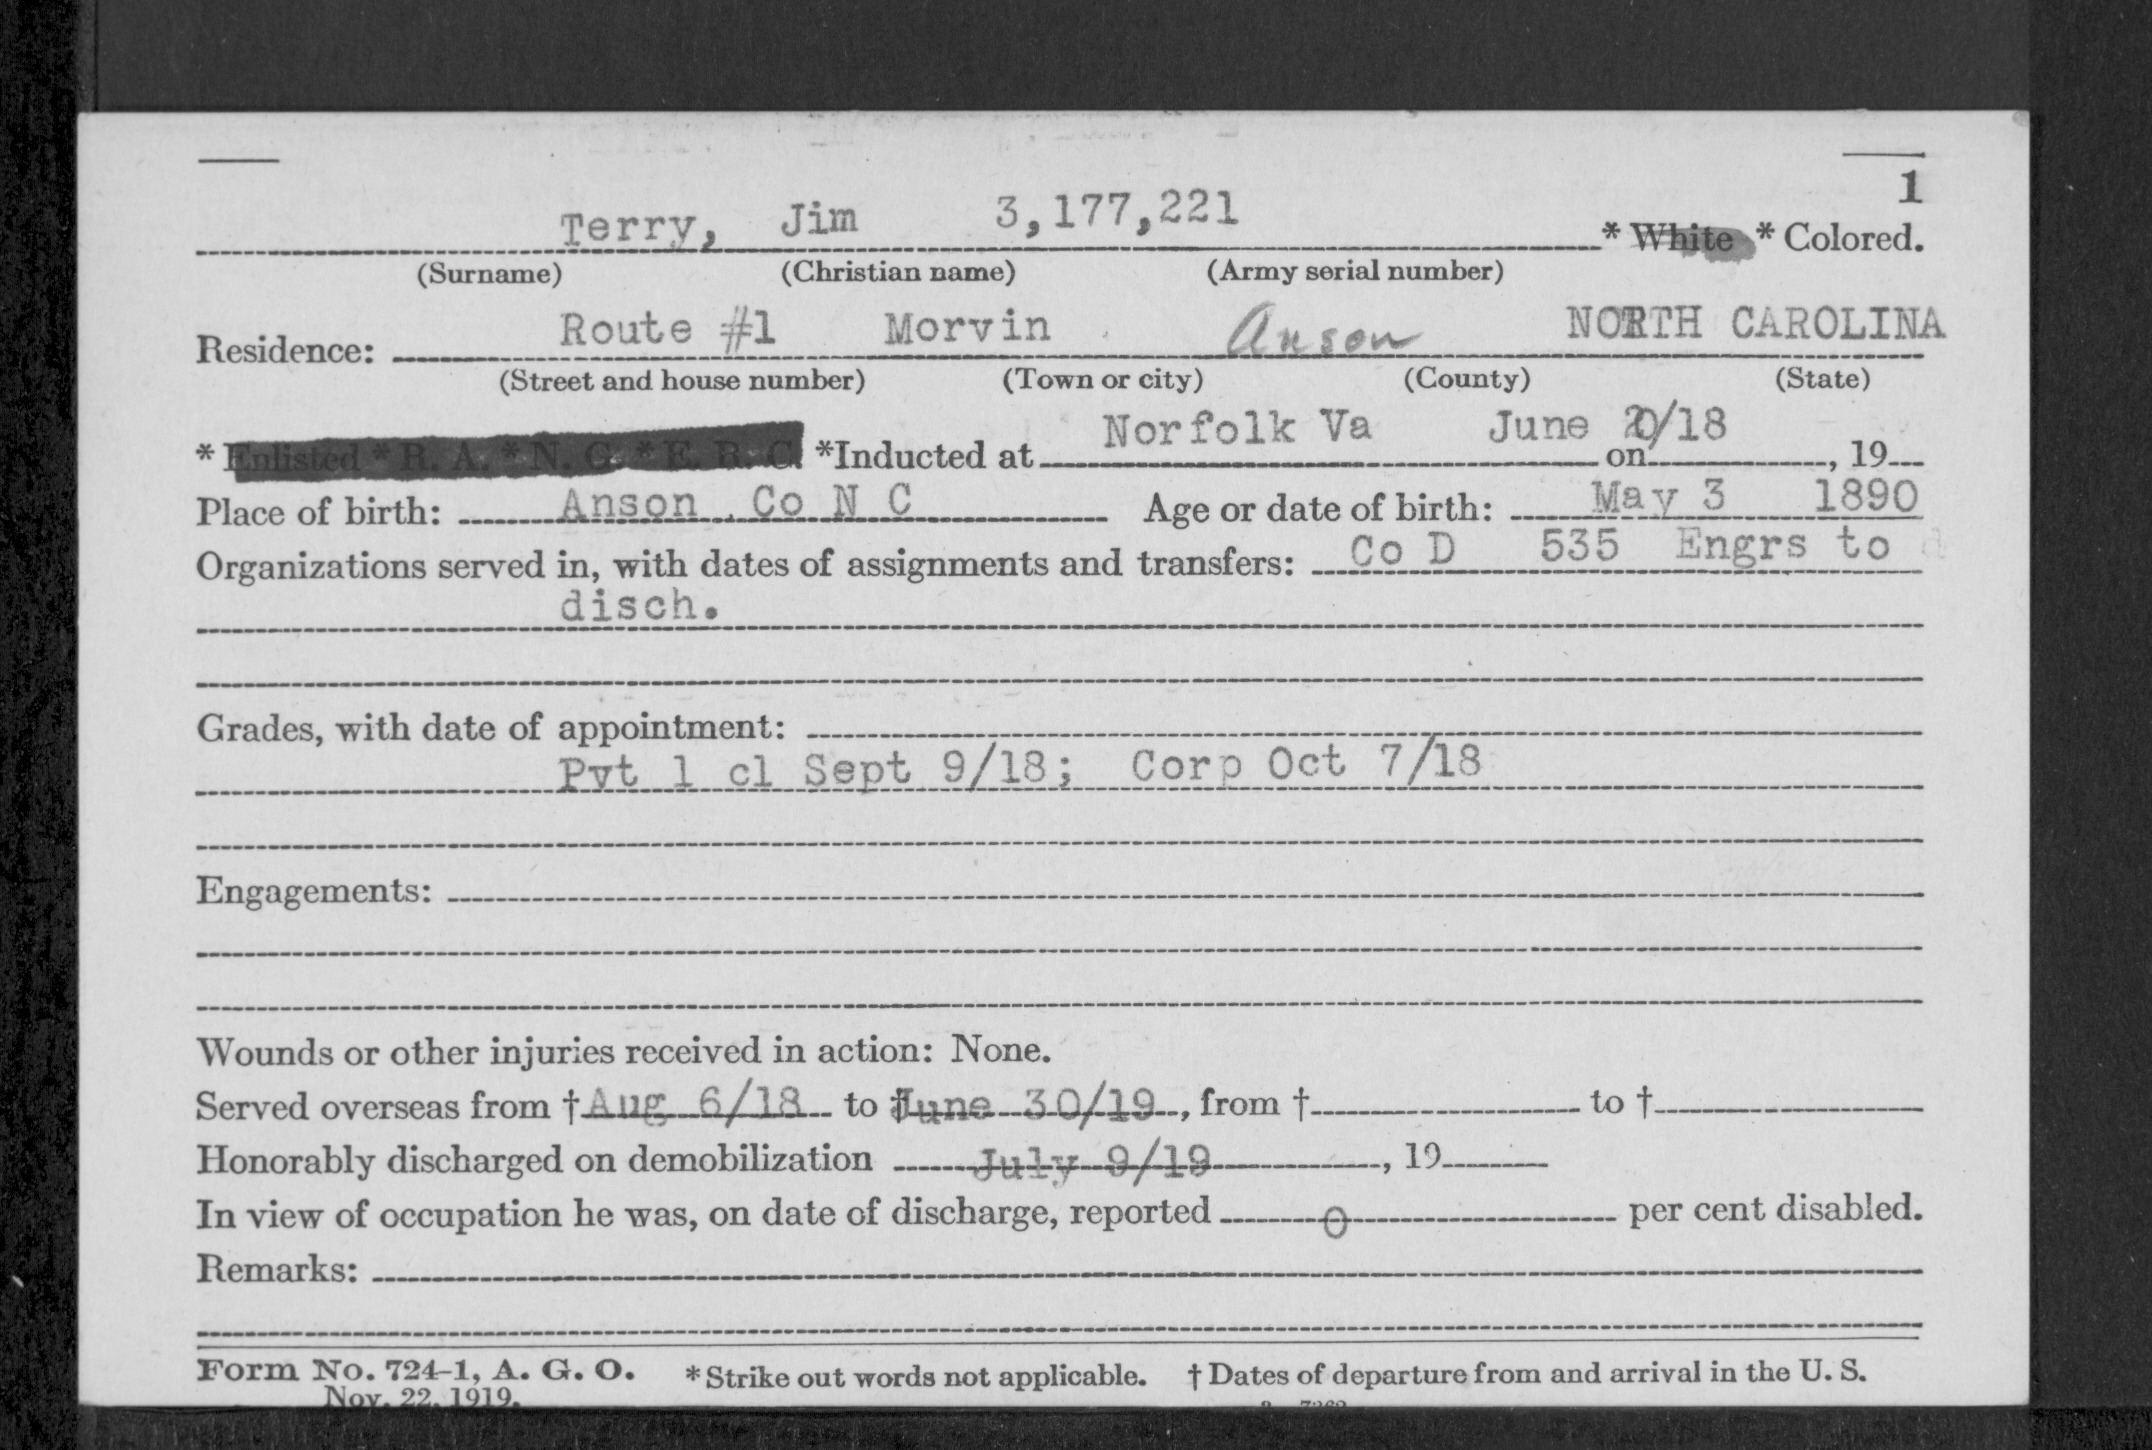 1
Terry, Jim 3,177,221 * White * Colored.
(Surname) (Christian name) (Army serial number)
Residence: Route #1 Morvin Anson NORTH CAROLINA
(Street and house number) (Town or city) (County) (State)
* Enlisted * R. A. * N. G. * E. R. C. *Inducted at Norfolk Va on June 20/18, 19
Place of birth: Anson Co N C Age or date of birth: May 3 1890
Organizations served in, with dates of assignments and transfers: Co D 535 Engrs to
disch.
Grades, with date of appointment:
Pvt 1 cl Sept 9/18; Corp Oct 7/18
Engagements:
Wounds or other injuries received in action: None.
Served overseas from † Aug 6/18 to † June 30/19, from † to †
Honorably discharged on demobilization July 9/19, 19
In view of occupation he was, on date of discharge, reported 0 per cent disabled.
Remarks:
Form No. 724-1, A. G. O. *Strike out words not applicable. † Dates of departure from and arrival in the U. S.
Nov. 22, 1919.